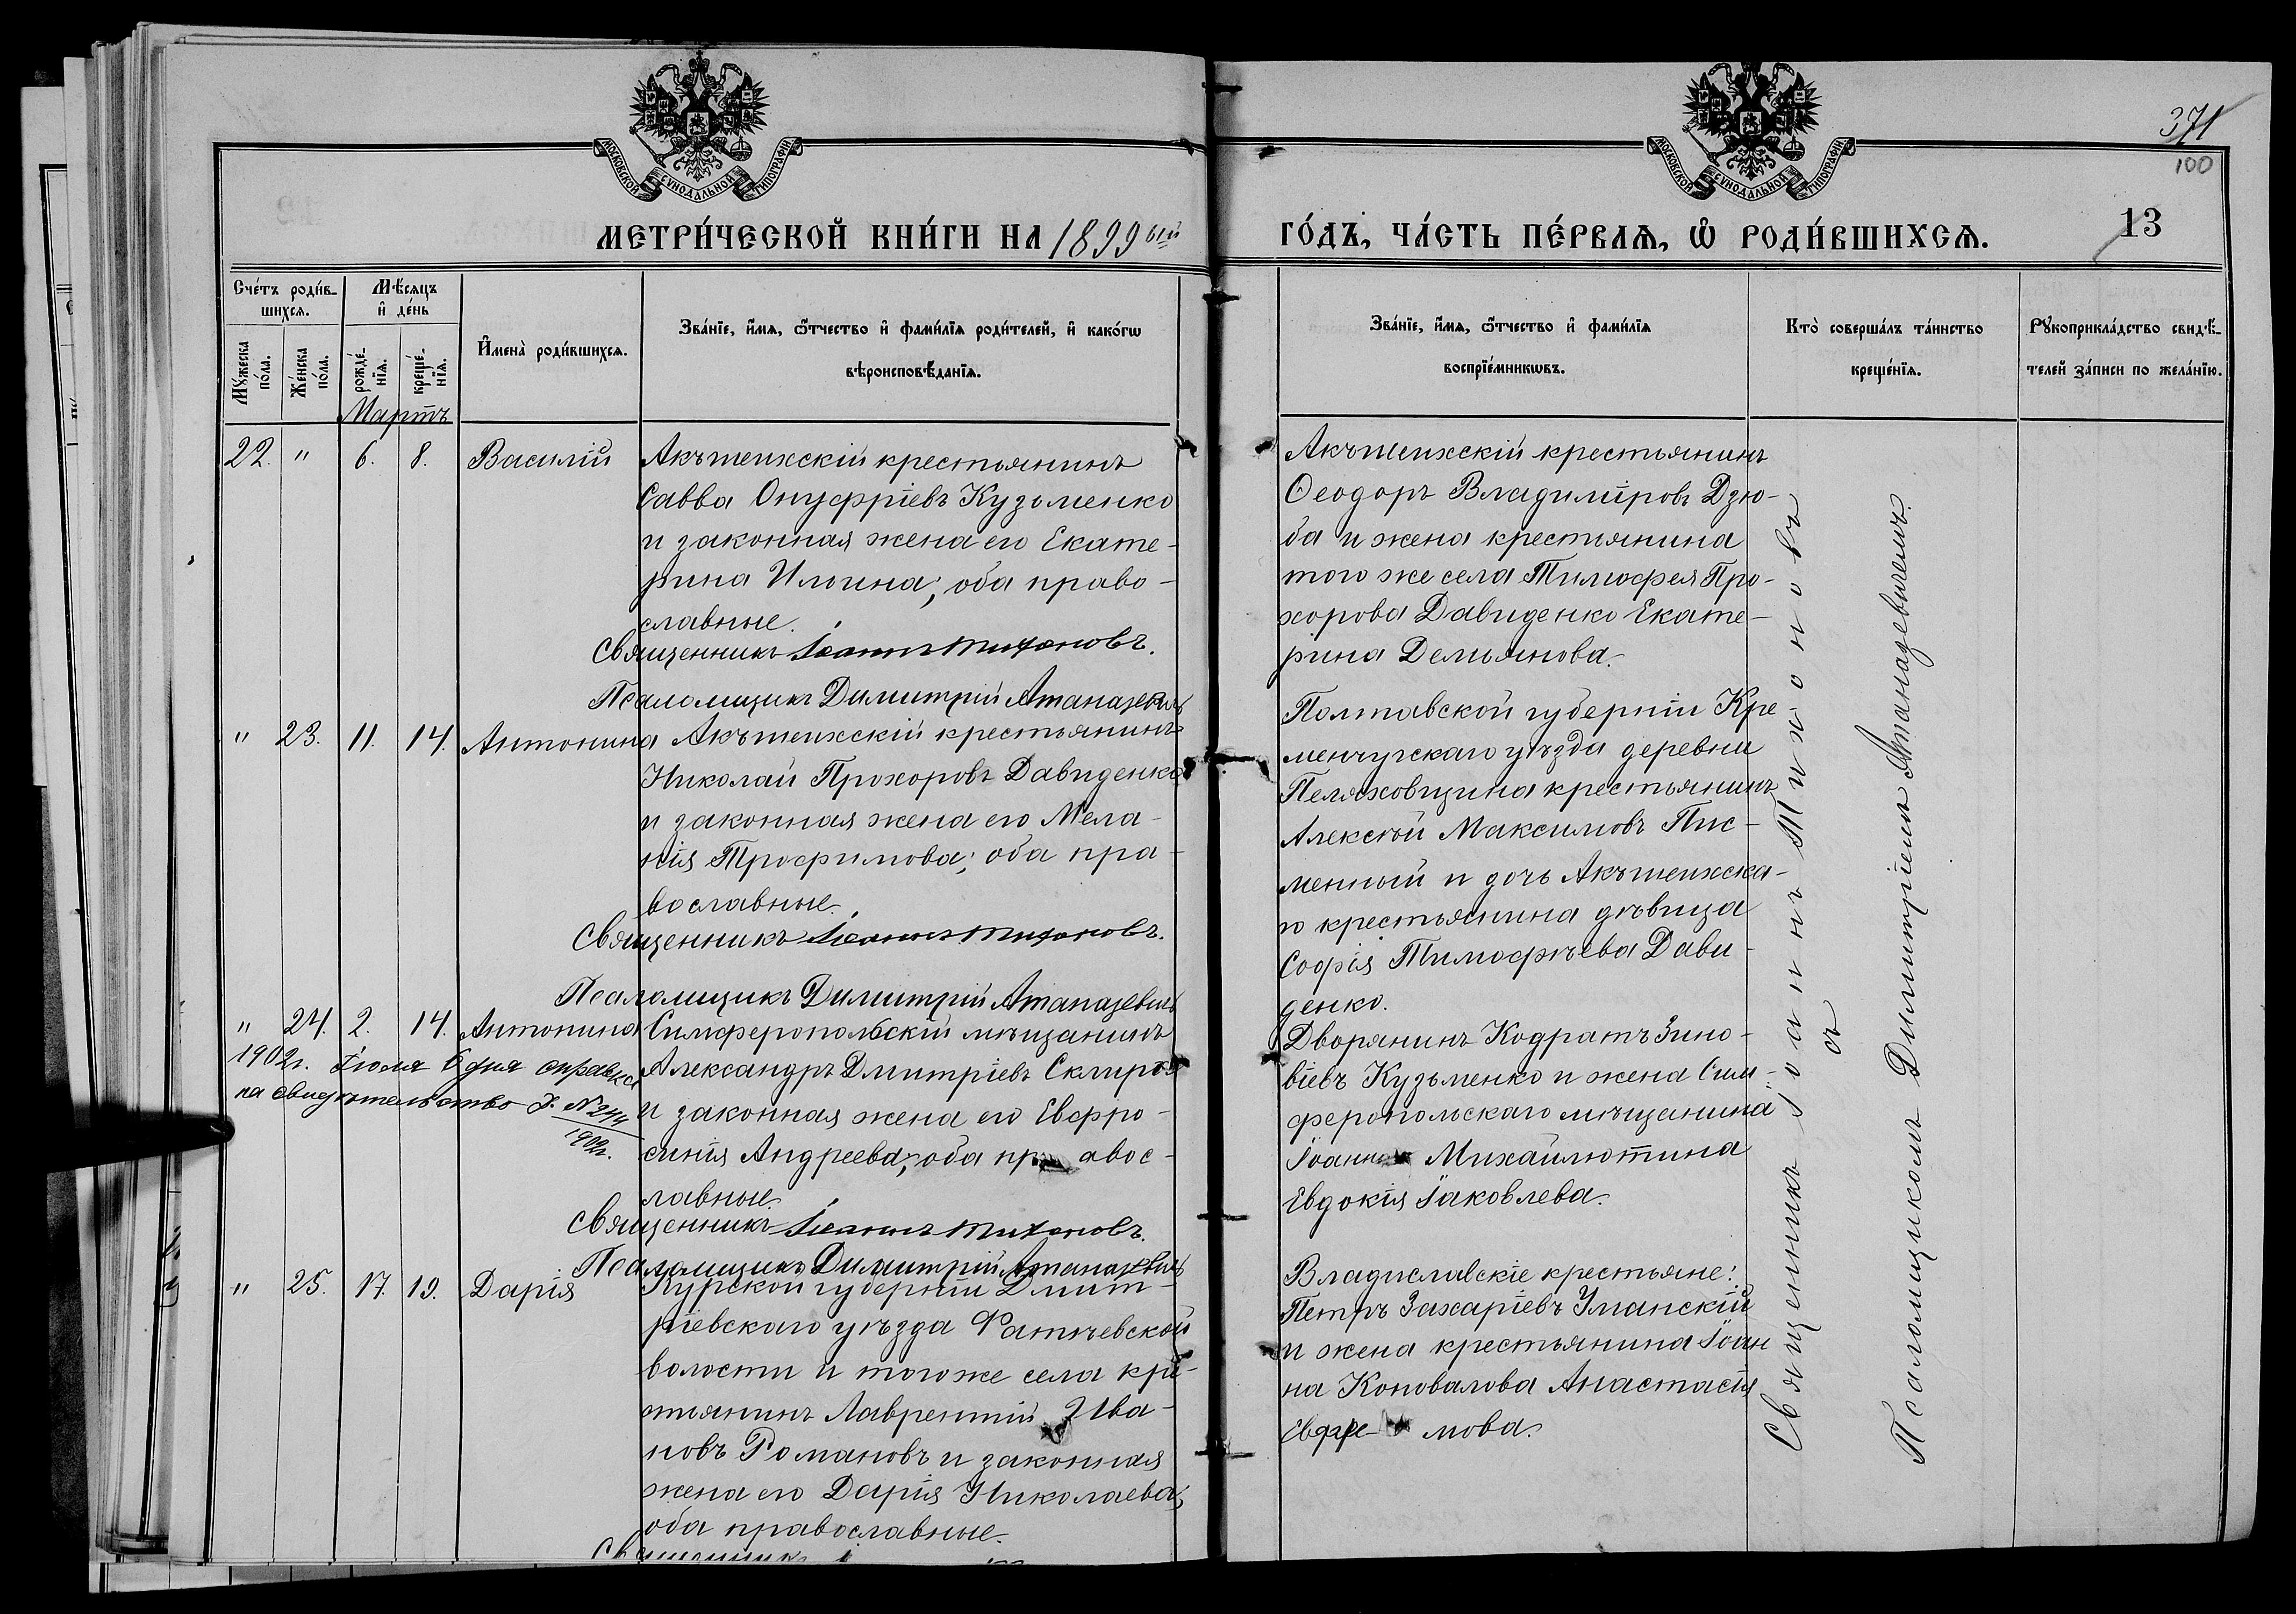 371
100
13
МОСКОВСКОЙ СѴНОДАЛЬНОЙ ТИПОГРАФІИ
МЕТРИ́ЧЕСКОЙ КНИ́ГИ НА 1899ый
МОСКОВСКОЙ СѴНОДАЛЬНОЙ ТИПОГРАФІИ
ГО́ДЪ, ЧА́СТЬ ПЕ́РВАѦ, Ѽ РОДИ́ВШИХСѦ.
Сче́тъ роди́в-
шихсѧ.
Мꙋ́жеска
по́ла.
Же́нска
по́ла.
Мѣ́сѧцъ
и҆ де́нь
рожде́-
нїѧ.
креще́-
нїѧ.
И҆мена̀ роди́вшихсѧ.
Зва́нїе, и҆́мѧ, ѻ҆́тчество и҆ фами́лїѧ роди́телей, и҆ како́гѡ
вѣроисповѣ́данїѧ.
Зва́нїе, и҆́мѧ, ѻ҆́тчество и҆ фами́лїѧ
воспрїе́мникѡвъ.
Кто̀ соверша́лъ та́инство
креще́нїѧ.
Рꙋкоприкла́дство свидѣ́-
телей за́писи по жела́нїю.
Мартъ
22. " 6. 8. Василій
Акъшеихскій крестьянинъ
Савва Онуфріевъ Кузьменко
и законная жена его Екате-
рина Ильина; оба право-
славные.
Священникъ Іоаннъ Тихоновъ.
Псаломщикъ Димитрій Атаназевичъ
Акъшеихскій крестьянинъ
Ѳеодоръ Владиміровъ Дзю-
ба и жена крестьянина
того же села Тимофея Про-
хорова Давиденко Екате-
рина Демьянова.
" 23. 11. 14. Антонина
Акъшеихскій крестьянинъ
Николай Прохоровъ Давиденко
и законная жена его Мела-
нія Трофимова; оба пра-
вославные.
Священникъ Іоаннъ Тихоновъ.
Псаломщикъ Димитрій Атаназевичъ
Полтавской губерніи Кре-
менчугскаго уѣзда деревни
Пеляховщина крестьянинъ
Алексѣй Максимовъ Пис-
менный и дочь Акъшеихска-
го крестьянина дѣвица
Софія Тимофѣева Дави-
денко.
" 24. 2. 14. Антонина
1902г. Іюля 6 дня справка
на свидѣтельство № 244
1902г.
Симферопольскій мѣщанинъ
Александръ Дмитріевъ Скляров
и законная жена его Евфро-
синія Андреева; оба правос-
лавные.
Священникъ Іоаннъ Тихоновъ.
Псаломщикъ Димитрій Атаназевичъ
Дворянинъ Кодратъ Зино-
віевъ Кузьменко и жена Сим-
феропольскаго мѣщанина
Іоанна Михайлютина
Евдокія Іаковлева.
" 25. 17. 19. Дарія
Курской губерніи Дмит-
ріевскаго уѣзда Фатѣевской
волости и того же села кре-
стьянинъ Лаврентій Ива-
новъ Романовъ и законная
жена его Дарія Николаева;
оба православные.
Владиславскіе крестьяне:
Петръ Захаріевъ Уманскій
и жена крестьянина Іоан
на Коновалова Анастасія
Евфре-мова.
Священникъ Іоаннъ Тихоновъ
съ
Псаломщикомъ Димитріемъ Атаназевичемъ.